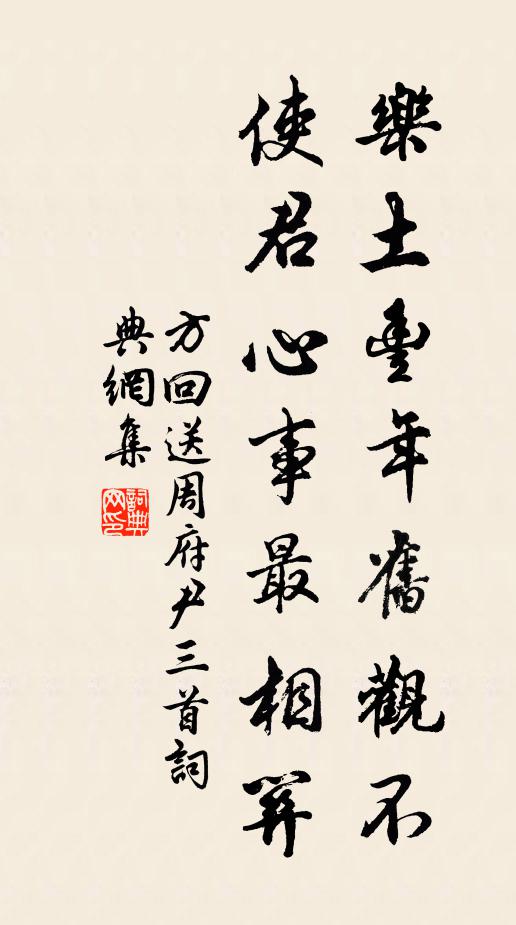 樂土豐年舊觀不
使君心事最相關
方回送周府尹三首詞
典網集
詞典
网印